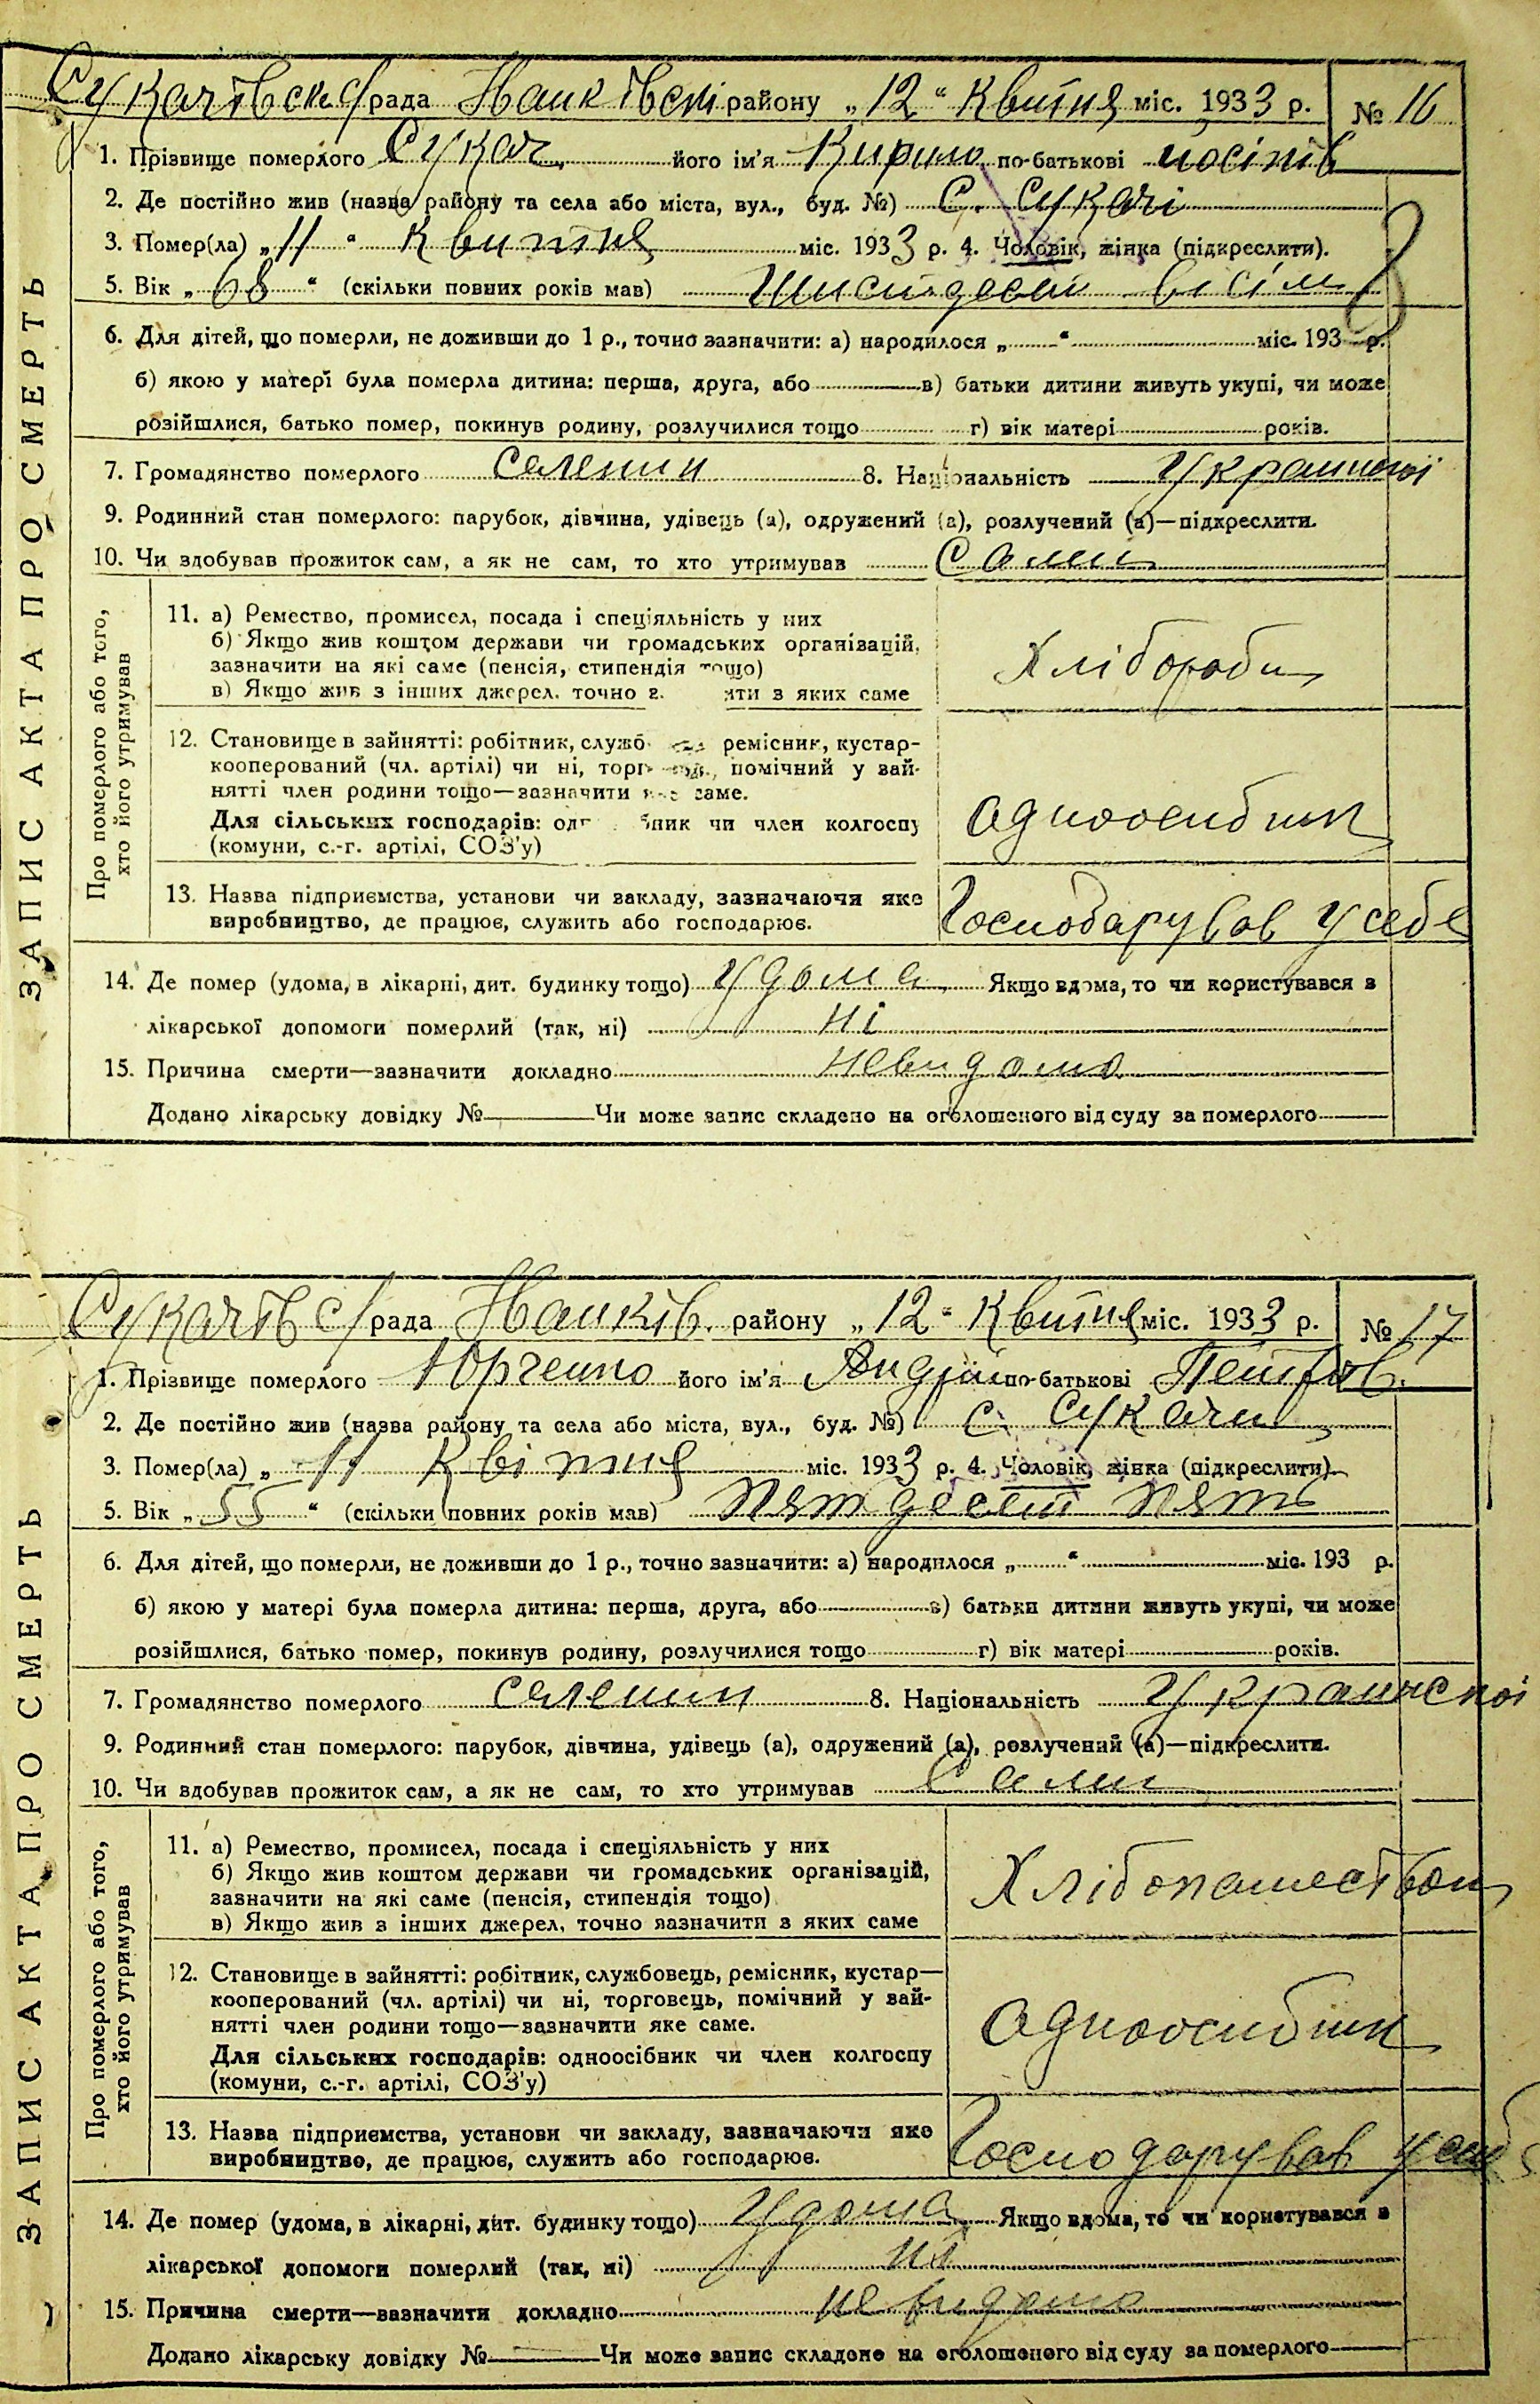 ЗАПИС АКТА ПРО СМЕРТЬ
Сукачівск. с/рада Іванківскі району „12“ Квітня міс. 1933 р. № 16
1. Прізвище померлого Сукач його ім'я Кирило по-батькові йосіпів
2. Де постійно жив (назва району та села або міста, вул., буд. №) С. Сукачі
3. Помер(ла) „11“ Квитня міс. 1933 р. 4. Чоловік, жінка (підкреслити).
5. Вік „68“ (скільки повних років мав) Шисьдесят вісім
6. Для дітей, що померли, не доживши до 1 р., точно зазначити: а) народилося „ “ міс. 193 р.
б) якою у матері була померла дитина: перша, друга, або в) батьки дитини живуть укупі, чи може
розійшлися, батько помер, покинув родину, розлучилися тощо г) вік матері років.
7. Громадянство померлого Селенин 8. Національність Украинскої
9. Родинний стан померлого: парубок, дівчина, удівець (а), одружений (а), розлучений (а)—підкреслити.
10. Чи здобував прожиток сам, а як не сам, то хто утримував Сами
Про померлого або того,
хто його утримував
11. а) Ремество, промисел, посада і спеціяльність у них
б) Якщо жив коштом держави чи громадських організацій,
зазначити на які саме (пенсія, стипендія тощо)
в) Якщо жив з інших джерел, точно з ити з яких саме
Хлібороби
12. Становище в зайнятті: робітник, служб ремісник, кустар-
кооперований (чл. артілі) чи ні, торг помічний у зай-
нятті член родини тощо—зазначити яке саме.
Для сільських господарів: од бник чи член колгоспу
(комуни, с.-г. артілі, СОЗ'у)
одноосибник
13. Назва підприємства, установи чи закладу, зазначаючи яке
виробництво, де працює, служить або господарює.
Господарував у себе
14. Де помер (удома, в лікарні, дит. будинку тощо) Удома Якщо вдома, то чи користувався з
лікарської допомоги померлий (так, ні) ні
15. Причина смерти—зазначити докладно невидомо
Додано лікарську довідку № Чи може запис складено на оголошеного від суду за померлого
ЗАПИС АКТА ПРО СМЕРТЬ
Сукачівс/рада Іванків. району „12“ Квітня міс. 1933 р. № 17
1. Прізвище померлого Юрченко його ім'я Андрій по-батькові Петров.
2. Де постійно жив (назва району та села або міста, вул., буд. №) С. Сукачи
3. Помер(ла) „11 Квітня міс. 1933 р. 4. Чоловік, жінка (підкреслити)
5. Вік „55“ (скільки повних років мав) пятдесят пять
6. Для дітей, що померли, не доживши до 1 р., точно зазначити: а) народилося „ “ міс. 193 р.
б) якою у матері була померла дитина: перша, друга, або в) батьки дитини живуть укупі, чи може
розійшлися, батько помер, покинув родину, розлучилися тощо г) вік матері років.
7. Громадянство померлого селенин 8. Національність Украинскої
9. Родинний стан померлого: парубок, дівчина, удівець (а), одружений (а), розлучений (а)—підкреслити.
10. Чи здобував прожиток сам, а як не сам, то хто утримував Сами
Про померлого або того,
хто його утримував
11. а) Ремество, промисел, посада і спеціяльність у них
б) Якщо жив коштом держави чи громадських організацій,
зазначити на які саме (пенсія, стипендія тощо)
в) Якщо жив з інших джерел, точно зазначити з яких саме
Хлібопашеством
12. Становище в зайнятті: робітник, службовець, ремісник, кустар—
кооперований (чл. артілі) чи ні, торговець, помічний у зай-
нятті член родини тощо—зазначити яке саме.
Для сільських господарів: одноосібник чи член колгоспу
(комуни, с.-г. артілі, СОЗ'у)
одноосибник
13. Назва підприємства, установи чи закладу, зазначаючи яке
виробництво, де працює, служить або господарює.
Господарував у себе
14. Де помер (удома, в лікарні, дит. будинку тощо) Удома Якщо вдома, то чи користувався з
лікарської допомоги померлий (так, ні) ні
15. Причина смерти—зазначити докладно невидомо
Додано лікарську довідку № Чи може запис складено на оголошеного від суду за померлого